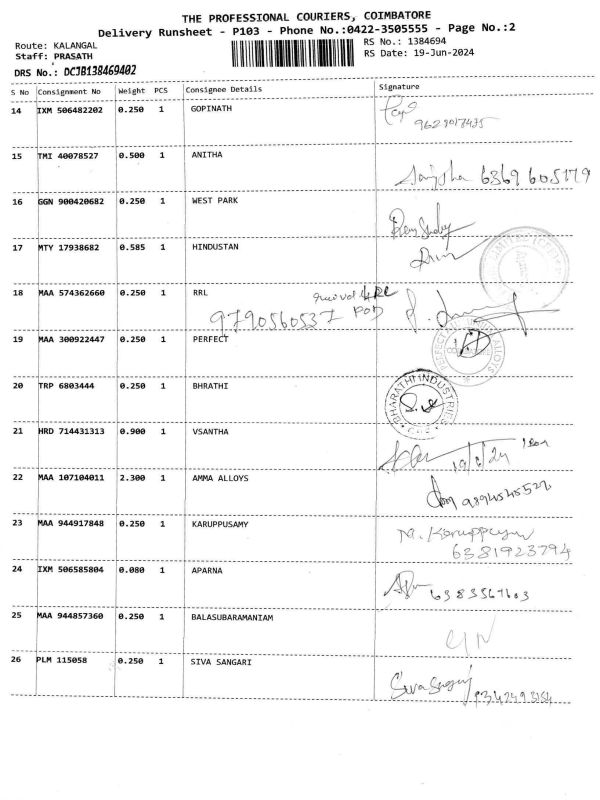 THE PROFESSIONAL COURIERS, COIMBATORE
Delivery Runsheet - P103 - Phone No.:0422-3505555 - Page No.:2
Route: KALANGAL
RS No.: 1384694
Staff: PRASATH
RS Date: 19-Jun-2024
DRS No.: DCJB138469402
S No Consignment No Weight PCS Consignee Details Signature
14 IXM 506482202 0.250 1 GOPINATH
15 TMI 40078527 0.500 1 ANITHA
6369 605179
16 GGN 900420682 0.250 1 WEST PARK
17 MTY 17938682 0.585 1 HINDUSTAN
18 MAA 574362660 0.250 1 RRL
9790560537 POD
19 MAA 300922447 0.250 1 PERFECT
20 TRP 6803444 0.250 1 BHRATHI
BHARATHI INDUSTRIES
21 HRD 714431313 0.900 1 VSANTHA
19/6/24
22 MAA 107104011 2.300 1 AMMA ALLOYS
23 MAA 944917848 0.250 1 KARUPPUSAMY
6381923794
24 IXM 506585804 0.080 1 APARNA
25 MAA 944857360 0.250 1 BALASUBARAMANIAM
26 PLM 115058 0.250 1 SIVA SANGARI